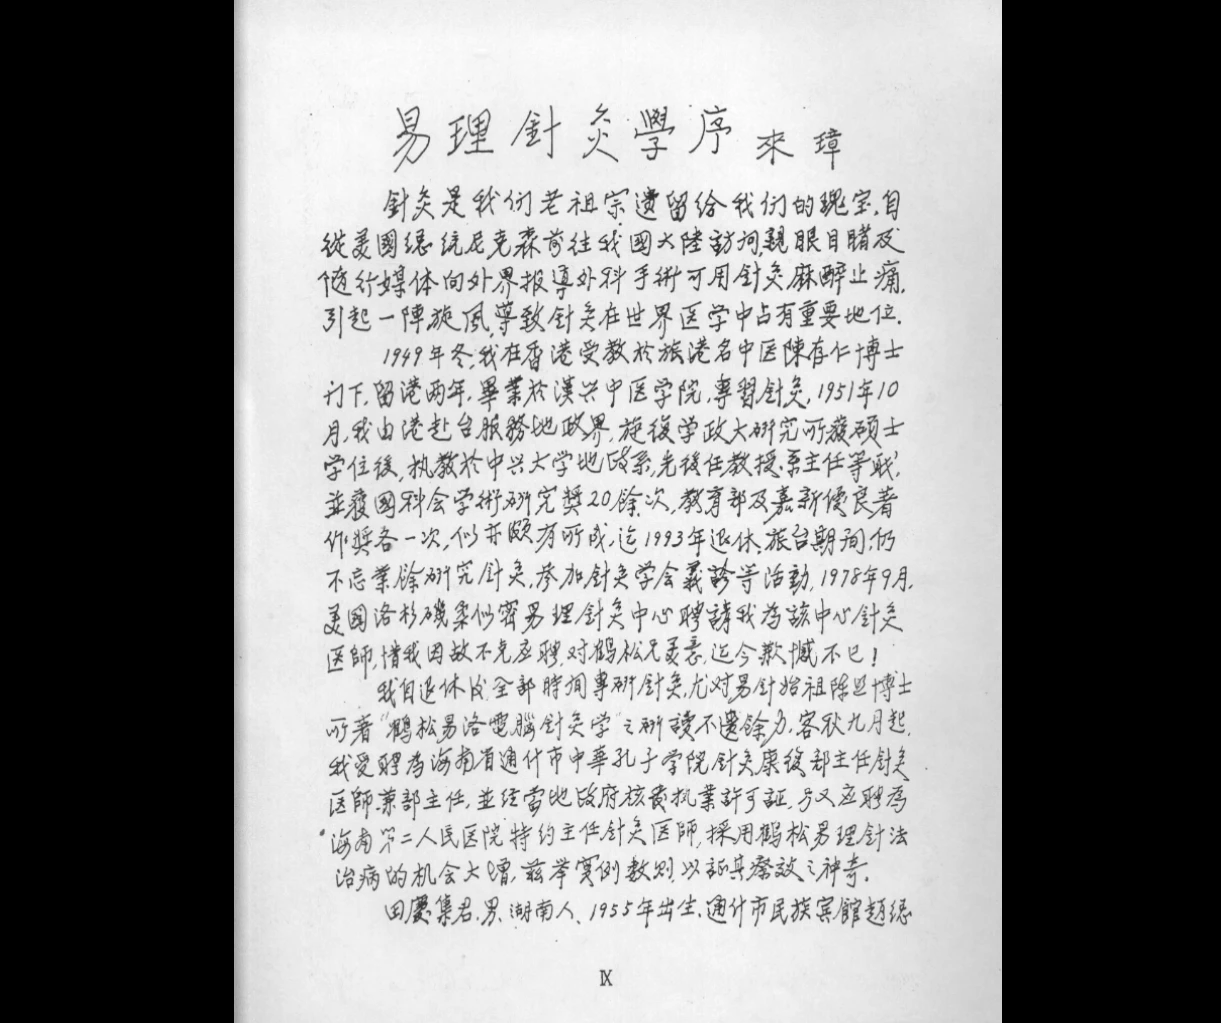 易理針灸學序 來璋
針灸是我们老祖宗遗留给我们的瑰宝,自
從美國總統尼克森前往我國大陸訪问,親眼目睹及
随行媒体向外界报導外科手術可用針灸麻醉止痛,
引起一陣旋風,導致針灸在世界医学中占有重要地位.
1949年冬,我在香港受教於旅港名中医陳存仁博士
门下,留港两年,畢業於漢兴中医学院,專習針灸,1951年10
月,我由港赴台服務地政界,旋復学政大研究所獲碩士
学位後,执教於中兴大学地政系,先後任教授.系主任等职,
並獲國科会学術研究獎20餘次,教育部及嘉新優良著
作奬各一次,似亦颇有所成,迄1993年退休,旅台期间,仍
不忘業餘研究針灸,参加針灸学会義診等活動,1978年9月,
美国洛杉磯柔似蜜易理針灸中心聘請我為該中心針灸
医師,惜我因故不克应聘,对鶴松兄美意,迄今歉憾不已!
我自退休后全部時间專研針灸,尤对易針始祖陈旦博士
所著"鶴松易洛電腦針灸学"之研讀不遗餘力,客秋九月起,
我受聘為海南省通什市中華孔子学院針灸康復部主任針灸
医師兼部主任,並经當地政府核发执業許可証,另又应聘為
海南第二人民医院特约主任針灸医師,採用鶴松易理針法
治病的机会大增,茲举實例数则,以証其療效之神奇.
田慶集君,男,湖南人,1955年出生,通什市民族宾館趙總
IX